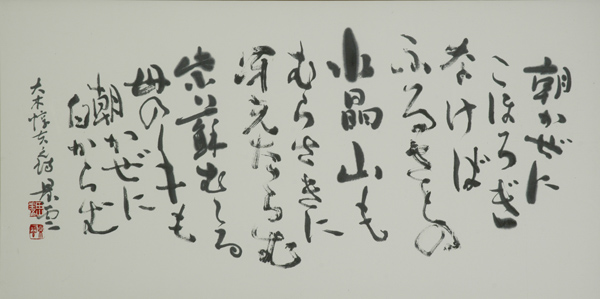 朝かぜに
こほろぎ
なけば
ふるさとの
水晶山も
むらさきに
冴えたらむ
紫蘇むしる
母の手も
朝かぜに
白からむ
大木惇夫